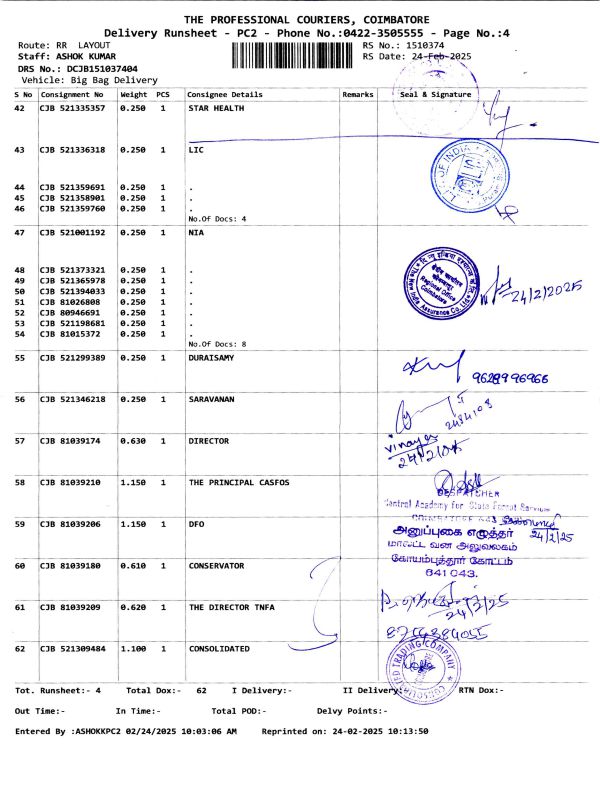 THE PROFESSIONAL COURIERS, COIMBATORE
Delivery Runsheet - PC2 - Phone No.:0422-3505555 - Page No.:4
Route: RR LAYOUT
RS No.: 1510374
Staff: ASHOK KUMAR
RS Date: 24-Feb-2025
DRS No.: DCJB151037404
Vehicle: Big Bag Delivery
S No Consignment No Weight PCS Consignee Details Remarks Seal & Signature
42 CJB 521335357 0.250 1 STAR HEALTH
43 CJB 521336318 0.250 1 LIC
OF INDIA
44 CJB 521359691 0.250 1 .
45 CJB 521358901 0.250 1 .
46 CJB 521359760 0.250 1 .
No.Of Docs: 4
47 CJB 521001192 0.250 1 NIA
The New India Assurance Co. Ltd
Regional Office
Coimbatore
24/2/2025
48 CJB 521373321 0.250 1 .
49 CJB 521365978 0.250 1 .
50 CJB 521394033 0.250 1 .
51 CJB 81026808 0.250 1 .
52 CJB 80946691 0.250 1 .
53 CJB 521198681 0.250 1 .
54 CJB 81015372 0.250 1 .
No.Of Docs: 8
55 CJB 521299389 0.250 1 DURAISAMY
56 CJB 521346218 0.250 1 SARAVANAN
57 CJB 81039174 0.630 1 DIRECTOR
58 CJB 81039210 1.150 1 THE PRINCIPAL CASFOS
DESPATCHER
Central Academy for State Forest Service
59 CJB 81039206 1.150 1 DFO
24/2/25
அனுப்புகை எழுத்தர்
மாவட்ட வன அலுவலகம்
கோயம்புத்தூர் கோட்டம்
641 043.
60 CJB 81039180 0.610 1 CONSERVATOR
61 CJB 81039209 0.620 1 THE DIRECTOR TNFA
24/2/25
62 CJB 521309484 1.100 1 CONSOLIDATED
TRADING COMPANY
Tot. Runsheet:- 4 Total Dox:- 62 I Delivery:- II Delivery:- RTN Dox:-
Out Time:- In Time:- Total POD:- Delvy Points:-
Entered By :ASHOKKPC2 02/24/2025 10:03:06 AM Reprinted on: 24-02-2025 10:13:50